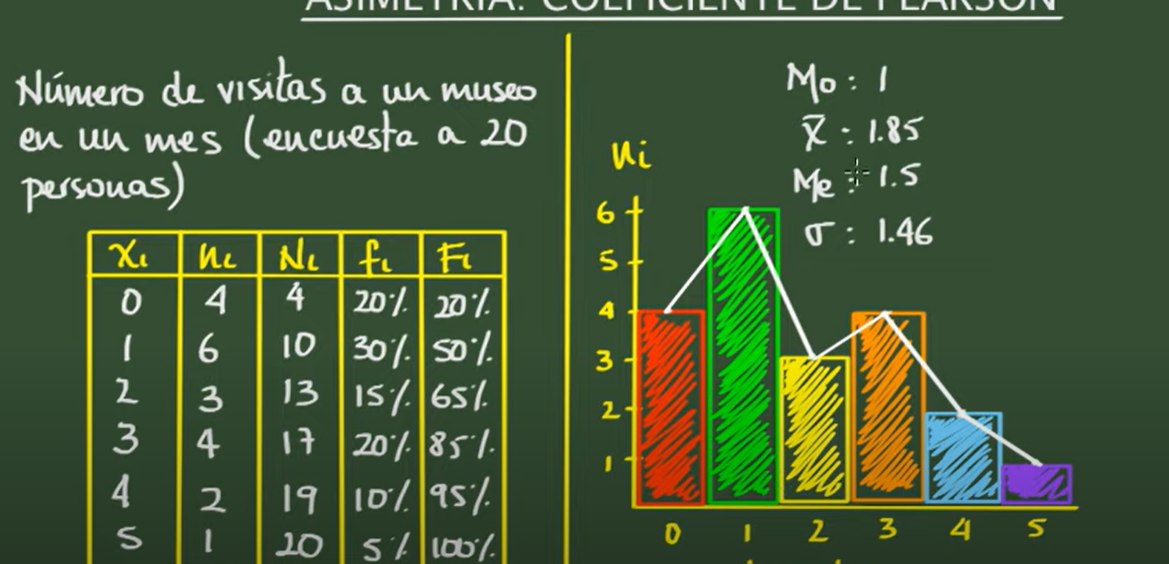 ASIMETRÍA: COEFICIENTE DE PEARSON
Número de visitas a un museo
en un mes (encuesta a 20
personas)
xi ni Ni fi Fi
0 4 4 20% 20%
1 6 10 30% 50%
2 3 13 15% 65%
3 4 17 20% 85%
4 2 19 10% 95%
5 1 20 5% 100%
Mo: 1
x̄: 1.85
Me: 1.5
σ: 1.46
ni
6
5
4
3
2
1
0 1 2 3 4 5